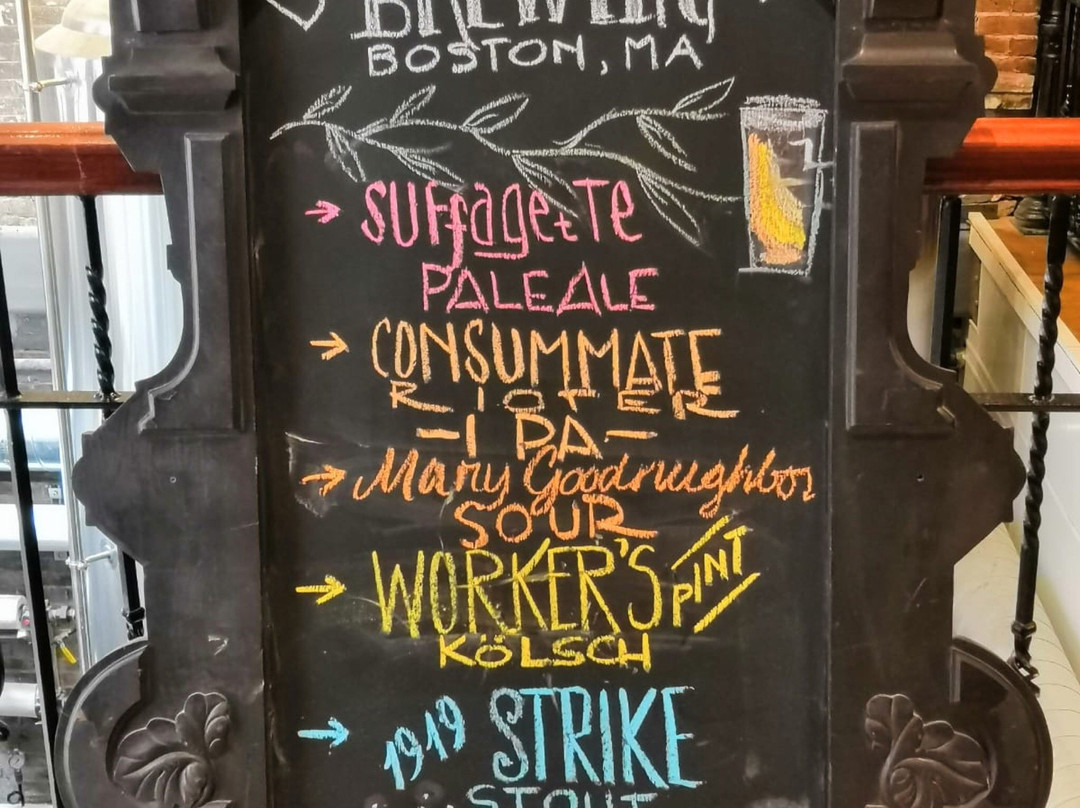 BREWING
BOSTON, MA
SUFfageTTe
PALE ALE
CONSUMMATE
RIOTER
-IPA-
Mary Goodneighbor
SOUR
WORKER'S PINT
KÖLSCH
1919 STRIKE
STOUT